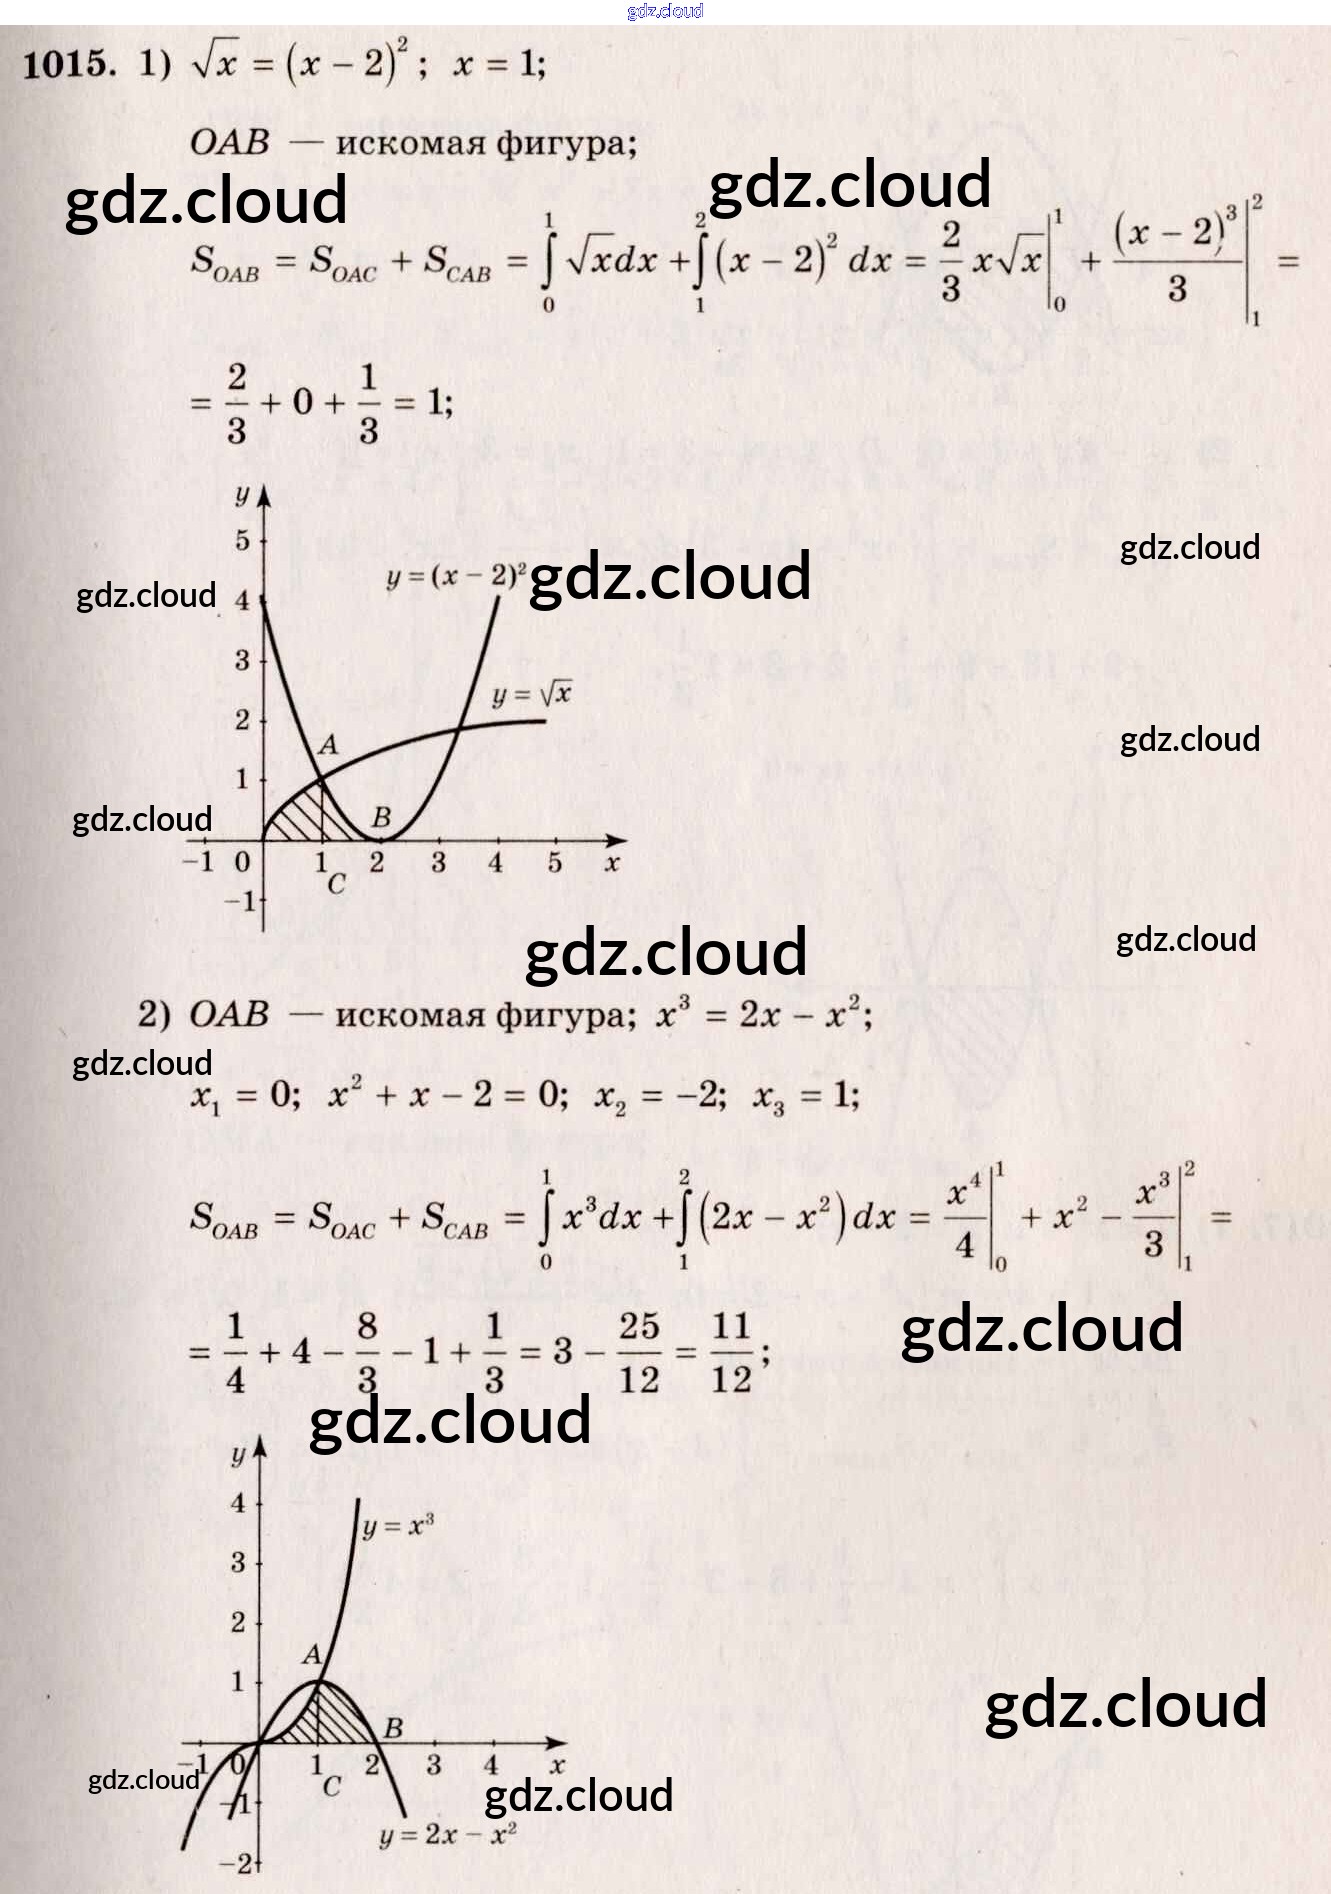 gdz.cloud
1015. 1) √x = (x − 2)²; x = 1;
OAB — искомая фигура;
gdz.cloud gdz.cloud
S_OAB = S_OAC + S_CAB = ∫₀¹ √x dx + ∫₁² (x − 2)² dx = 2/3 x√x |₀¹ + (x − 2)³/3 |₁² =
= 2/3 + 0 + 1/3 = 1;
y
5
gdz.cloud
y = (x − 2)²
gdz.cloud
gdz.cloud
4
3
y = √x
2
A
gdz.cloud
1
gdz.cloud
B
−1 0 1 2 3 4 5 x
C
−1
gdz.cloud
gdz.cloud
2) OAB — искомая фигура; x³ = 2x − x²;
gdz.cloud
x₁ = 0; x² + x − 2 = 0; x₂ = −2; x₃ = 1;
S_OAB = S_OAC + S_CAB = ∫₀¹ x³dx + ∫₁² (2x − x²)dx = x⁴/4 |₀¹ + x² − x³/3 |₁² =
= 1/4 + 4 − 8/3 − 1 + 1/3 = 3 − 25/12 = 11/12;
gdz.cloud
gdz.cloud
y
4
y = x³
3
2
A
1
gdz.cloud
B
−1 0 1 2 3 4 x
C
gdz.cloud
gdz.cloud
−1
y = 2x − x²
−2